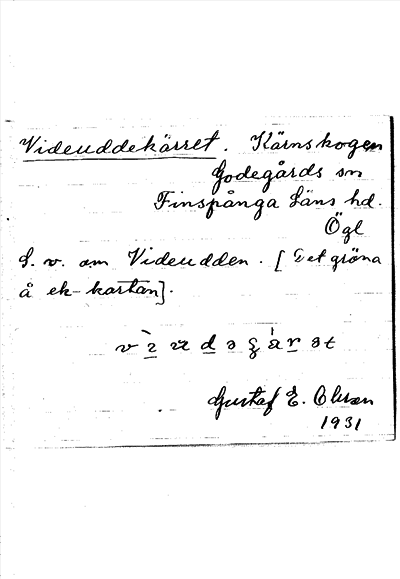 Videuddekärret. Kärnskogen
Godegårds sn
Finspånga Läns hd.
Ögl
S. v. om Videudden. [Det gröna
å ek-kartan].
Gustaf E. Olsson
1931